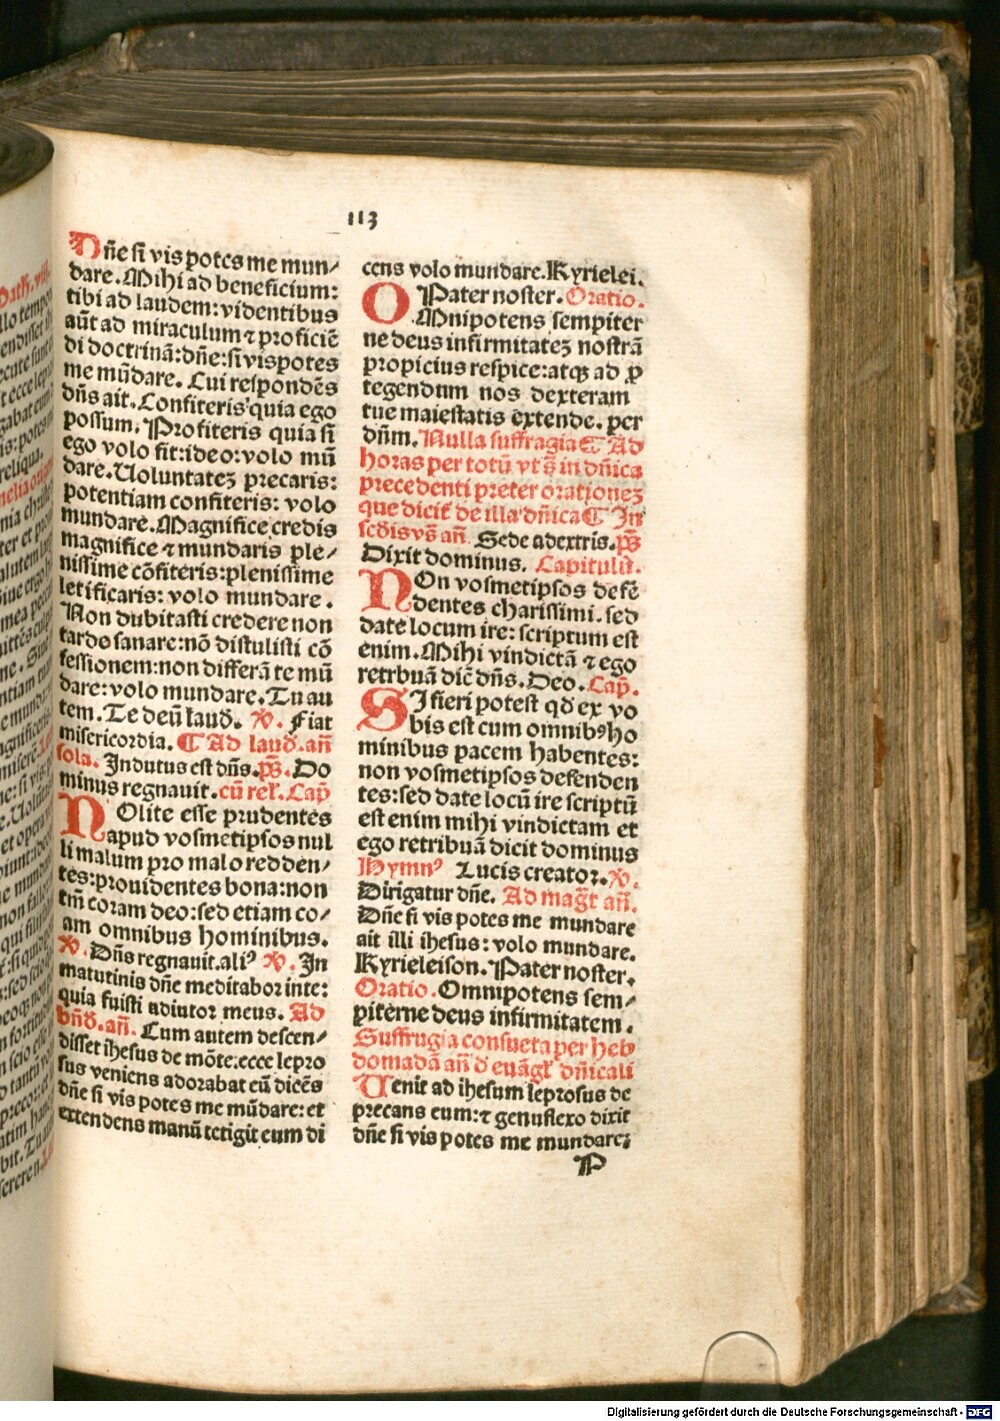 113
Dñe si vis potes me mun/
dare. Mihi ad beneficium:
tibi ad laudem: videntibus
aūt ad miraculum ⁊ proficiē
di doctrinā: dñe: si vis potes
me mūdare. Cui respondēs
dñs ait. Confiteris quia ego
possum. Profiteris quia si
ego volo fit: ideo: volo mū
dare. Uoluntatez precaris:
potentiam confiteris: volo
mundare. Magnifice credis
magnifice ⁊ mundaris ple/
nissime cōfiteris: plenissime
letificaris: volo mundare.
Non dubitasti credere non
tardo sanare: nō distulisti cō
fessionem: non differā te mū
dare: volo mundare. Tu au
tem. Te deū laud. ℣. Fiat
misericordia. ¶ Ad laud. añ
sola. Indutus est dñs. ps. Do
minus regnauit. cū rel. Cap
NOlite esse prudentes
apud vosmetipsos nul
li malum pro malo redden/
tes: prouidentes bona: non
tm̄ coram deo: sed etiam co/
am omnibus hominibus.
℣. Dñs regnauit. aliꝰ ℣. In
matutinis dñe meditabor in te:
quia fuisti adiutor meus. Ad
bñd. añ. Cum autem descen/
disset ihesus de mōte: ecce lepro
sus veniens adorabat eū dicēs
dñe si vis potes me mūdare: et
extendens manū tetigit eum di
cens volo mundare. Kyrielei.
Pater noster. Oratio.
OMnipotens sempiter
ne deus infirmitatez nostrā
propicius respice: atqꝫ ad ꝓ
tegendum nos dexteram
tue maiestatis extende. per
dñm. Nulla suffragia ¶ Ad
horas per totū vt s̄ in dñica
precedenti preter orationez
que dicit᷑ de illa dñica ¶ In
scdis vs̄ añ. Sede a dextris. ps
Dixit dominus. Capitulū.
NOn vosmetipsos defē
dentes charissimi. sed
date locum ire: scriptum est
enim. Mihi vindictā ⁊ ego
retrbuā dic̄ dñs. Deo. Cap.
SI fieri potest qd ex vo
bis est cum omnibꝰ ho
minibus pacem habentes:
non vosmetipsos defenden
tes: sed date locū ire scriptū
est enim mihi vindictam et
ego retribuā dicit dominus
Hymnꝰ Lucis creator. ℣.
Dirigatur dñe. Ad magt añ.
Dñe si vis potes me mundare
ait illi ihesus: volo mundare.
Kyrieleison. Pater noster.
Oratio. Omnipotens sem/
piterne deus infirmitatem.
Suffrugia consueta per heb
domadā añ d euāgl dñicali
Uenit ad ihesum leprosus de
precans eum: ⁊ genuflexo dixit
dñe si vis potes me mundare:
P
Digitalisierung gefördert durch die Deutsche Forschungsgemeinschaft - DFG